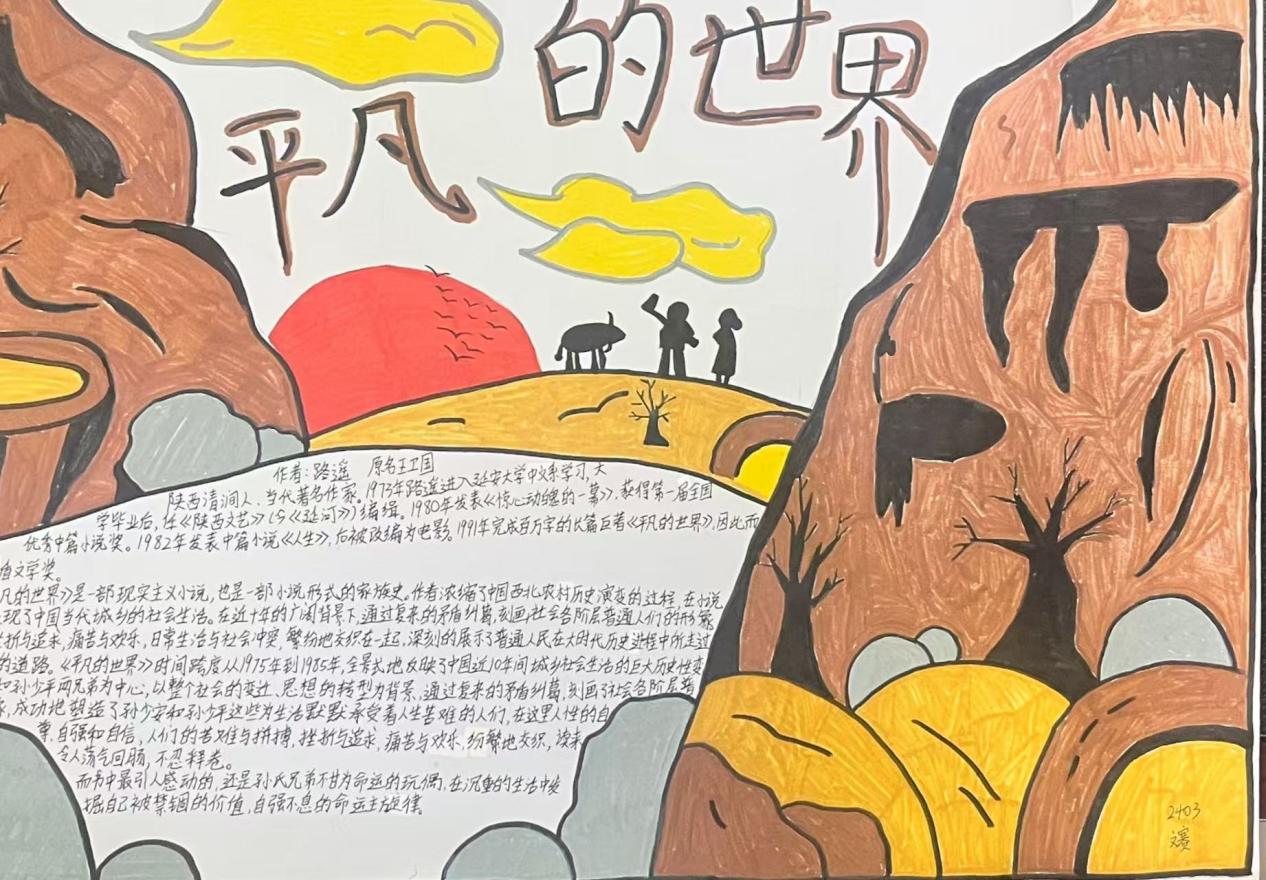 平凡的世界
作者:路遥 原名王卫国
陕西清涧人、当代著名作家。1973年路遥进入延安大学中文系学习,大
学毕业后,任《陕西文艺》(今《延河》)编缉。1980年发表《惊心动魄的一幕》,获得第一届全国
优秀中篇小说奖。1982年发表中篇小说《人生》,后被改编为电影。1991年完成百万字的长篇巨著《平凡的世界》,因此而
盾文学奖。
凡的世界》是一部现实主义小说,也是一部小说形式的家族史。作者浓缩了中国西北农村历史演变的过程,在小说
现了中国当代城乡的社会生活。在近十年的广阔背景下,通过复杂的矛盾纠葛,刻画社会各阶层普通人们的形象
挫折与追求,痛苦与欢乐,日常生活与社会冲突,繁纷地交织在一起,深刻的展示了普通人民在大时代历史进程中所走过
的道路。《平凡的世界》时间跨度从1975年到1985年,全景式地反映了中国近10年间城乡社会生活的巨大历史性变
和孙少平两兄弟为中心,以整个社会的变迁、思想的转型为背景,通过复杂的矛盾纠葛,刻画了社会各阶层普
象,成功地塑造了孙少安和孙少平这些为生活默默承受着人生苦难的人们,在这里人性的自
尊、自强和自信,人们的苦难与拼搏,挫折与追求,痛苦与欢乐,纷繁地交织,读来
令人荡气回肠,不忍释卷。
而书中最引人感动的,还是孙氏兄弟不甘为命运的玩偶,在沉重的生活中发
掘自己被禁锢的价值,自强不息的命运主旋律。
2403
文赛